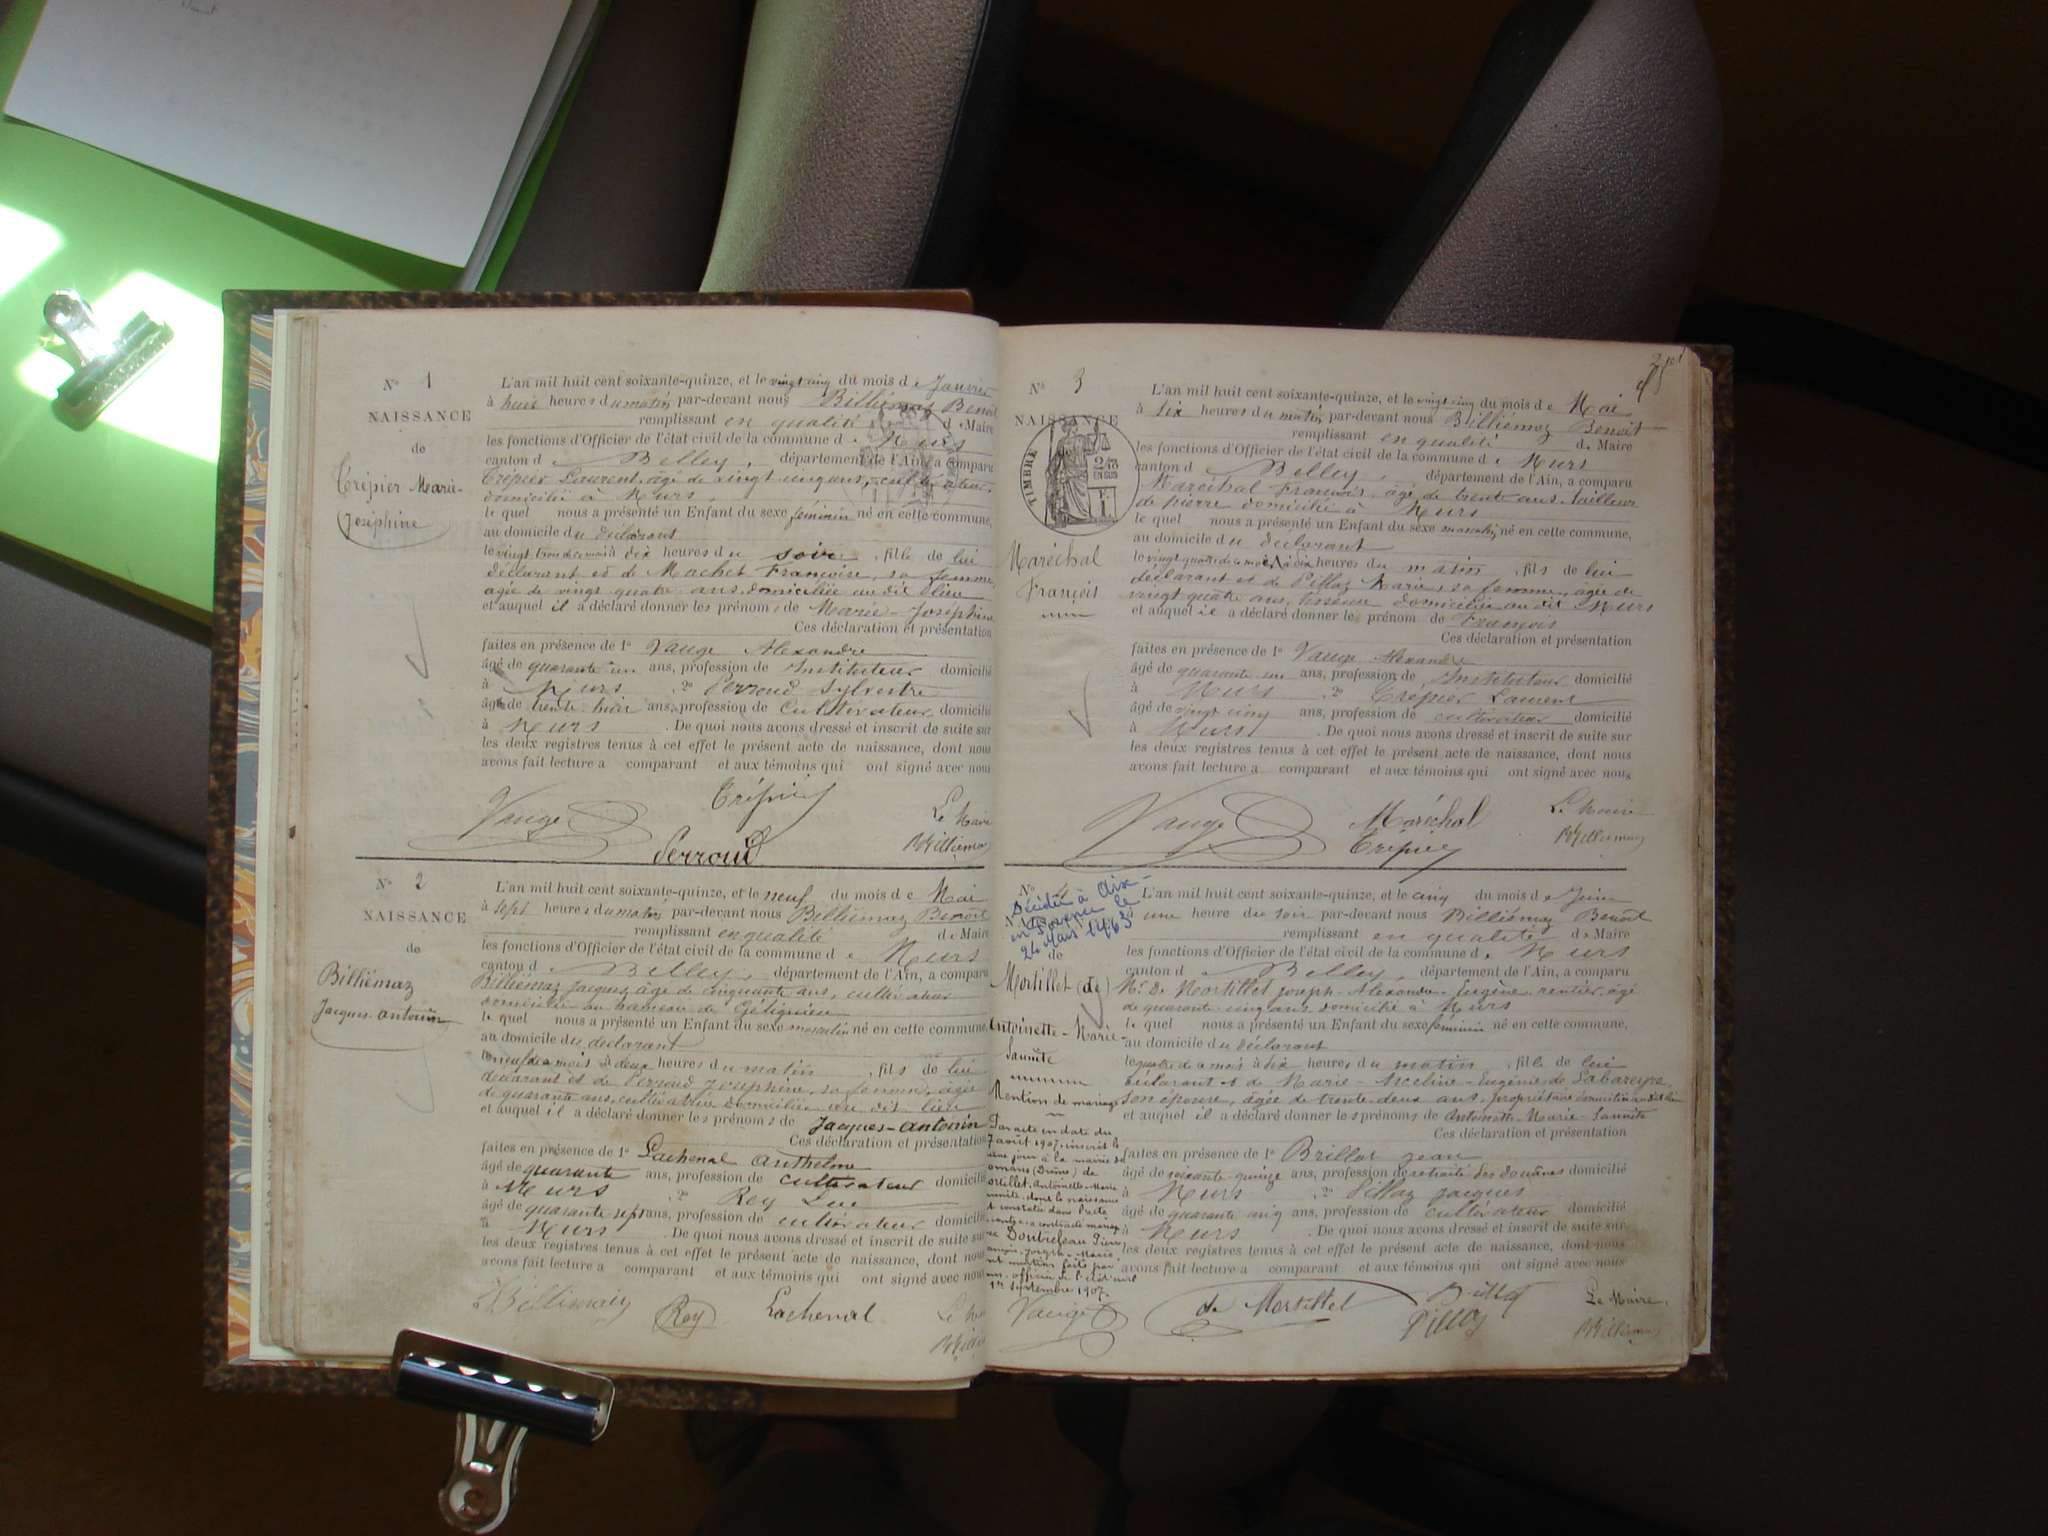 N° 1
NAISSANCE
de
Trépier Marie-
Joséphine
L'an mil huit cent soixante-quinze, et le vingt cinq du mois de Janvier
à huit heures du matin par-devant nous Billiémaz Benoit
remplissant en qualité de Maire
les fonctions d'Officier de l'état civil de la commune de Murs
canton d Belley, département de l'Ain, a comparu
Trépier Laurent, âgé de vingt cinq ans, cultivateur,
domicilié à Murs,
lequel nous a présenté un Enfant du sexe féminin né en cette commune,
au domicile du déclarant
le vingt trois du mois à dix heures du soir, fille de lui
déclarant et de Machet Françoise, sa femme,
âgée de vingt quatre ans, domiciliée au dit lieu
et auquel il a déclaré donner les prénoms de Marie-Joséphine
Ces déclaration et présentation
faites en présence de 1° Vauge Alexandre
âgé de quarante un ans, profession de Instituteur domicilié
à Murs, 2° Perroud Sylvestre
âgé de trente huit ans, profession de cultivateur domicilié
à Murs. De quoi nous avons dressé et inscrit de suite sur
les deux registres tenus à cet effet le présent acte de naissance, dont nous
avons fait lecture a comparant et aux témoins qui ont signé avec nous
Trépier
Vauge
Le Maire
Perroud
Billiémaz
N° 2
NAISSANCE
de
Billiémaz
Jacques-Antonin
L'an mil huit cent soixante-quinze, et le neuf du mois de Mai
à sept heures du matin par-devant nous Billiémaz Benoît
remplissant en qualité de Maire
les fonctions d'Officier de l'état civil de la commune de Murs
canton d Belley, département de l'Ain, a comparu
Billiémaz Jacques, âgé de cinquante ans, cultivateur
domicilié au hameau de
lequel nous a présenté un Enfant du sexe masculin né en cette commune,
au domicile du déclarant
le neuf de mois à deux heures du matin, fils de lui
déclarant et de Perroud Joséphine, sa femme, âgée
de quarante ans, cultivatrice domiciliée au dit lieu
et auquel il a déclaré donner les prénoms de Jacques-Antonin
Ces déclaration et présentation
faites en présence de 1° Lachenal Anthelme
âgé de quarante ans, profession de cultivateur domicilié
à Murs, 2° Rey Luc
âgé de quarante sept ans, profession de cultivateur domicilié
à Murs. De quoi nous avons dressé et inscrit de suite sur
les deux registres tenus à cet effet le présent acte de naissance, dont nous
avons fait lecture a comparant et aux témoins qui ont signé avec nous
Rey
Lachenal
Le
N° 3
NAISSANCE
TIMBRE
2/10
EN SUS
Maréchal
François
L'an mil huit cent soixante-quinze, et le vingt cinq du mois de Mai
à six heures du matin, par-devant nous Billiémaz Benoît
remplissant en qualité de Maire
les fonctions d'Officier de l'état civil de la commune de Murs
canton d Belley, département de l'Ain, a comparu
Maréchal François, âgé de trente ans, tailleur
de pierre domicilié à Murs
lequel nous a présenté un Enfant du sexe masculin, né en cette commune,
au domicile du déclarant
le vingt quatre de mois à dix heures du matin, fils de lui
déclarant et de Pillaz Marie, sa femme, âgée de
vingt quatre ans, domiciliée au dit Murs
et auquel il a déclaré donner le prénom de François
Ces déclaration et présentation
faites en présence de 1° Vauge Alexandre
âgé de quarante un ans, profession de Instituteur domicilié
à Murs, 2° Trépier Laurent
âgé de vingt cinq ans, profession de cultivateur domicilié
à Murs. De quoi nous avons dressé et inscrit de suite sur
les deux registres tenus à cet effet le présent acte de naissance, dont nous
avons fait lecture a comparant et aux témoins qui ont signé avec nous
Vauge
Maréchal
Trépier
Le Maire
Billiémaz
N° 4
Décédée à Aix-
en Provence le
24 Mars 1963
de
Mortillet (de)
Antoinette-Marie-
Jannite
Mention de mariage
Par acte en date du
7 août 1907, inscrit le
même jour à la mairie de
Romans (Drôme) de
Mortillet, Antoinette Marie
dont la naissance
est constatée dans l'acte
a contracté mariage
Pierre
Joseph-Marie
mention faite par
officier de l'état civil
1er Septembre 1907.
L'an mil huit cent soixante-quinze, et le cinq du mois de Juin
à une heure du soir par-devant nous Billiémaz Benoît
remplissant en qualité de Maire
les fonctions d'Officier de l'état civil de la commune de Murs
canton d Belley, département de l'Ain, a comparu
Mr De Mortillet Joseph-Alexandre-Eugène, rentier, âgé
de quarante cinq ans, domicilié à Murs
lequel nous a présenté un Enfant du sexe féminin né en cette commune,
au domicile du déclarant
le quatre de mois à six heures du matin, fille de lui
déclarant et de Marie-Anceline-Eugénie de
son épouse, âgée de trente deux ans, propriétaire domiciliée au dit lieu
et auquel il a déclaré donner les prénoms de Antoinette-Marie-Jannite
Ces déclaration et présentation
faites en présence de 1° Brillat Jean
âgé de soixante-quinze ans, profession de retraité des douanes domicilié
à Murs, 2° Pillaz Jacques
âgé de quarante cinq ans, profession de cultivateur domicilié
à Murs. De quoi nous avons dressé et inscrit de suite sur
les deux registres tenus à cet effet le présent acte de naissance, dont nous
avons fait lecture a comparant et aux témoins qui ont signé avec nous
Vauge
de Mortillet
Brillat
Pillaz
Le Maire,
Billiémaz